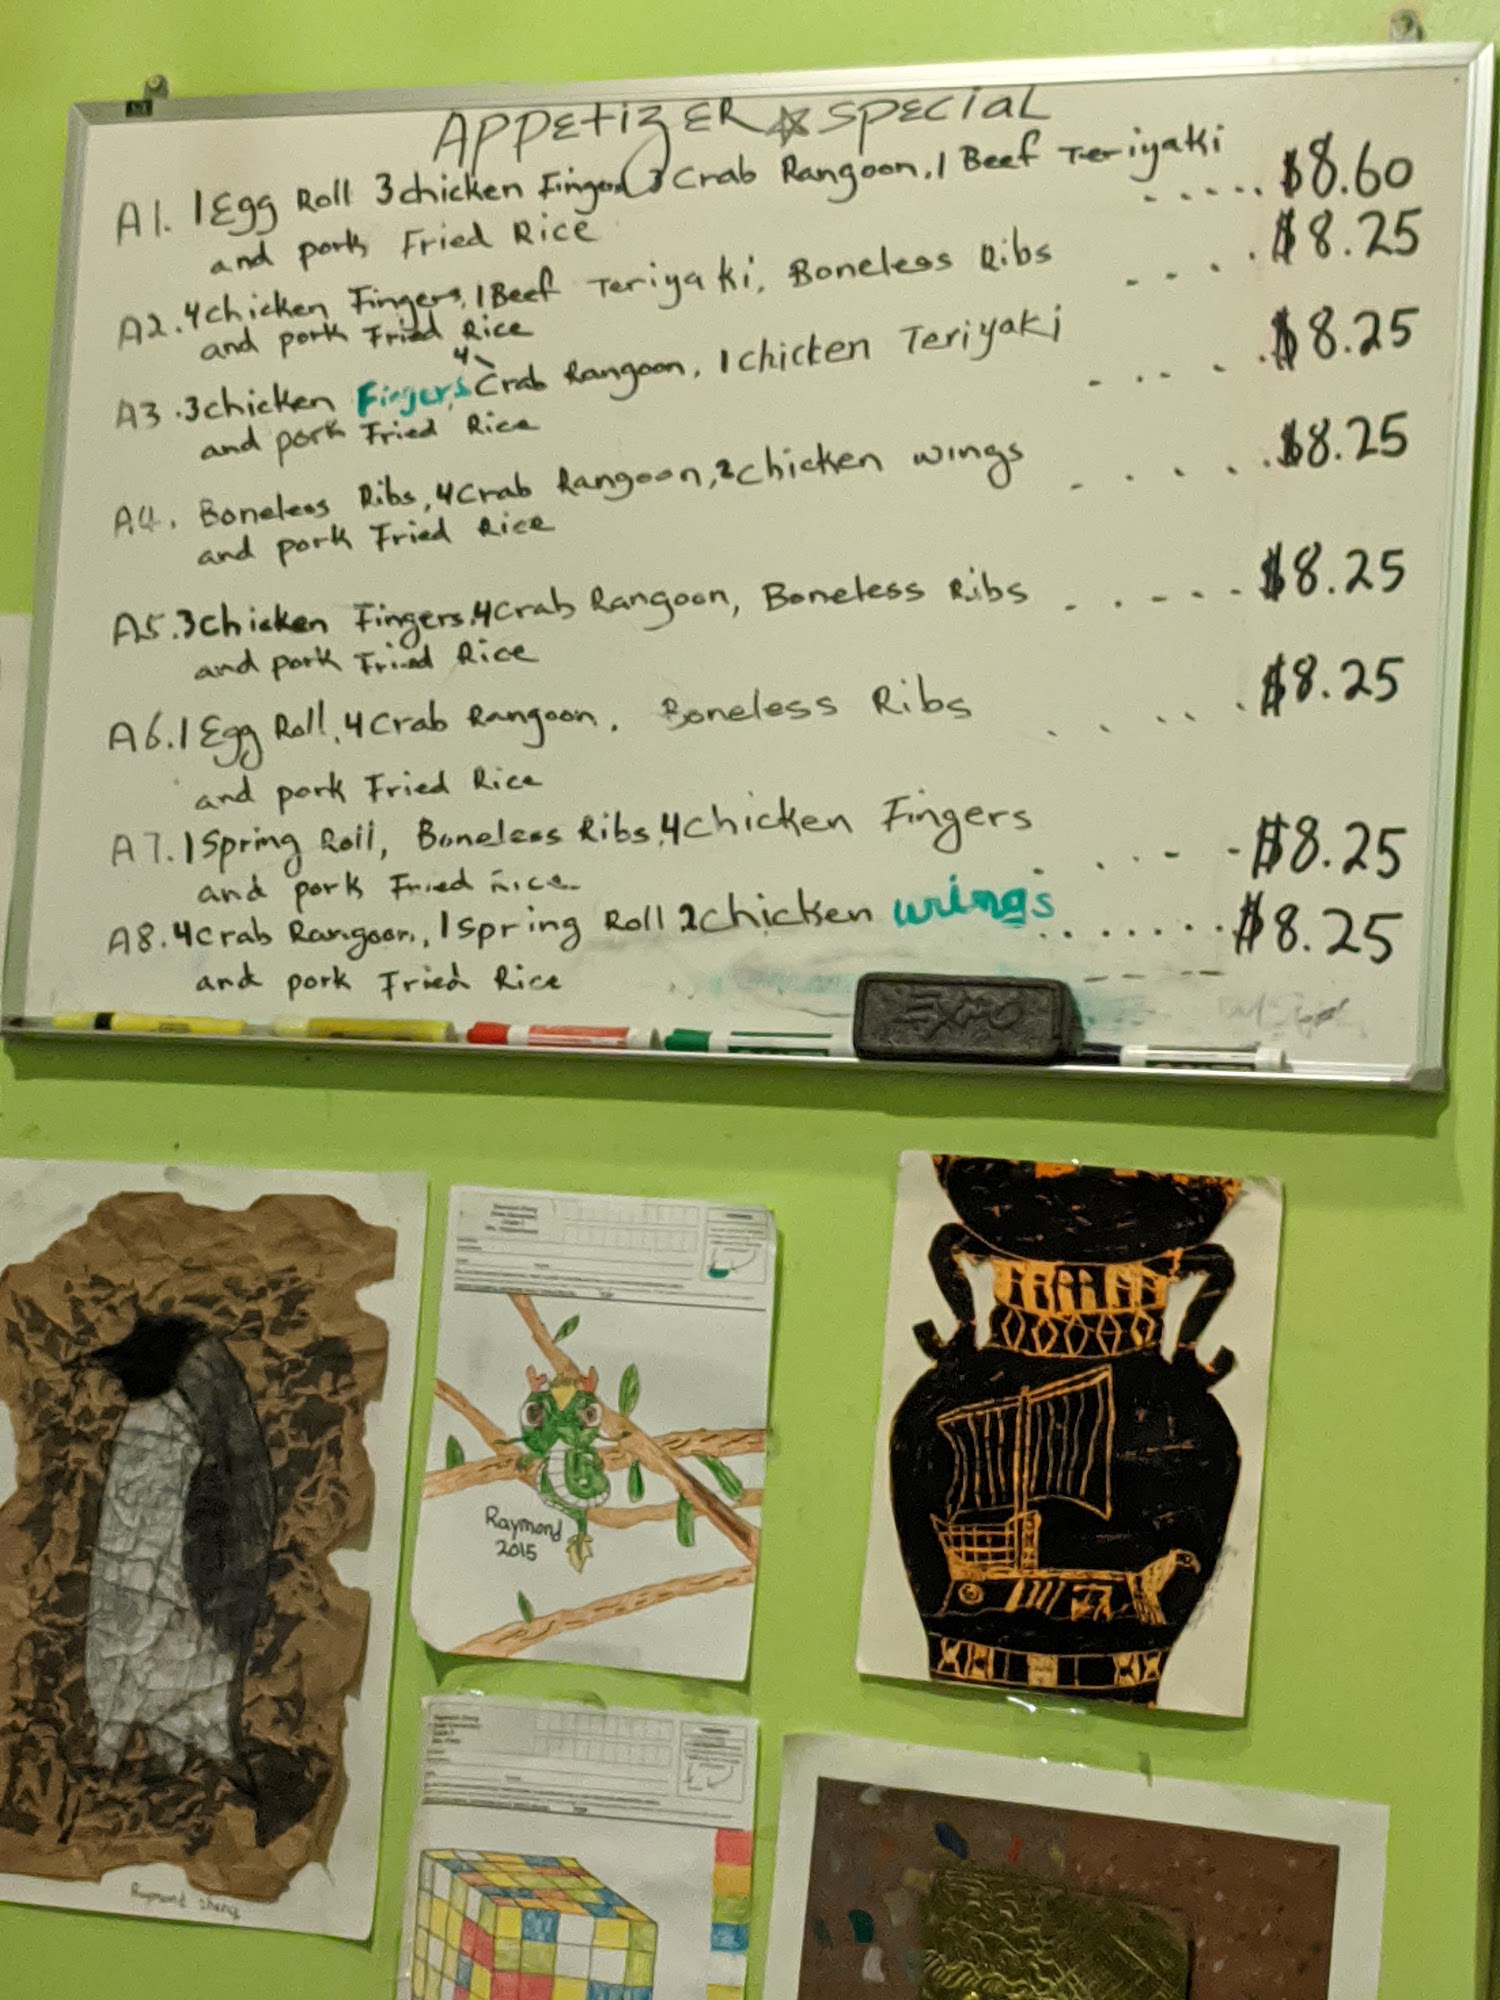 APPEtizER ☆ SPECiaL
A1. 1 Egg Roll 3 chicken Fingers 3 Crab Rangoon, 1 Beef Teriyaki ..... $8.60
and pork Fried Rice
A2. 4 chicken Fingers, 1 Beef Teriyaki, Boneless Ribs .... $8.25
and pork Fried Rice
A3. 3 chicken Fingers, 4 Crab Rangoon, 1 chicken Teriyaki ..... $8.25
and pork Fried Rice
A4. Boneless Ribs, 4 Crab Rangoon, 2 chicken wings ..... $8.25
and pork Fried Rice
A5. 3 chicken Fingers, 4 Crab Rangoon, Boneless Ribs ...... $8.25
and pork Fried Rice
A6. 1 Egg Roll, 4 Crab Rangoon, Boneless Ribs .... $8.25
and pork Fried Rice
A7. 1 Spring Roll, Boneless Ribs, 4 chicken Fingers ..... $8.25
and pork Fried Rice
A8. 4 Crab Rangoon, 1 Spring Roll 2 chicken wings ....... $8.25
and pork Fried Rice
EXPO
Raymond
2015
Raymond